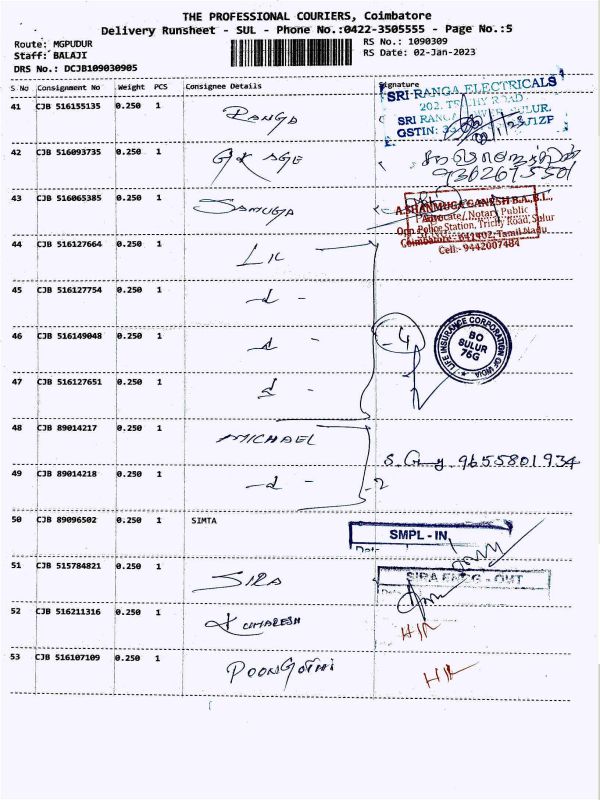 THE PROFESSIONAL COURIERS, Coimbatore
Delivery Runsheet - SUL - Phone No.:0422-3505555 - Page No.:5
Route: MGPUDUR RS No.: 1090309
Staff: BALAJI RS Date: 02-Jan-2023
DRS No.: DCJB109030905
S No Consignment No Weight PCS Consignee Details Signature
41 CJB 516155135 0.250 1 RANGA
SRI RANGA ELECTRICALS
202, TRICHY ROAD
SRI RANGA TOWER, SULUR.
GSTIN: 33
42 CJB 516093735 0.250 1
9362675501
43 CJB 516065385 0.250 1 SAMUGA
A.SHANMUGA GANESH B.A.,B.L.,
Advocate/ Notary Public
Opp.Police Station, Trichy Road, Sulur
Coimbatore - 641402, Tamil Nadu
Cell:- 9442007484
44 CJB 516127664 0.250 1 LIC
45 CJB 516127754 0.250 1 - d -
46 CJB 516149048 0.250 1 - d -
- 4
LIFE INSURANCE CORPORATION OF INDIA
BO
SULUR
76G
47 CJB 516127651 0.250 1 - d -
48 CJB 89014217 0.250 1 MICHAEL
9655801934
49 CJB 89014218 0.250 1 - d - - 2
50 CJB 89096502 0.250 1 SIMTA
SMPL - IN
Date
51 CJB 515784821 0.250 1 SIRA
SIRA ENGG - OUT
52 CJB 516211316 0.250 1 KUMARESH
H/R
53 CJB 516107109 0.250 1 POONGOTHI
H/R